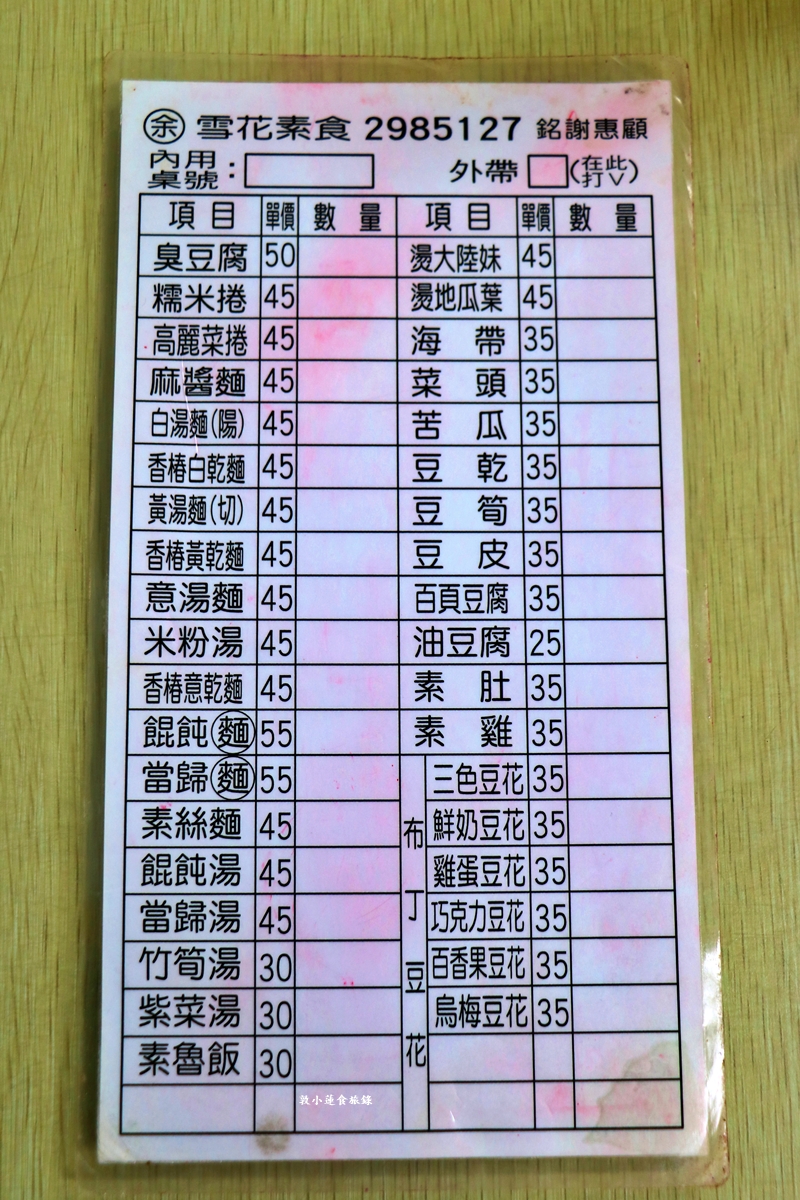 余 雪花素食 2985127 銘謝惠顧
內用桌號： 外帶 (在此打V)
項目 單價 數量 項目 單價 數量
臭豆腐 50 燙大陸妹 45
糯米捲 45 燙地瓜葉 45
高麗菜捲 45 海帶 35
麻醬麵 45 菜頭 35
白湯麵(陽) 45 苦瓜 35
香椿白乾麵 45 豆乾 35
黃湯麵(切) 45 豆筍 35
香椿黃乾麵 45 豆皮 35
意湯麵 45 百頁豆腐 35
米粉湯 45 油豆腐 25
香椿意乾麵 45 素肚 35
餛飩麵 55 素雞 35
布丁豆花
當歸麵 55 三色豆花 35
素絲麵 45 鮮奶豆花 35
餛飩湯 45 雞蛋豆花 35
當歸湯 45 巧克力豆花 35
竹筍湯 30 百香果豆花 35
紫菜湯 30 烏梅豆花 35
素魯飯 30
敦小蓮食旅錄